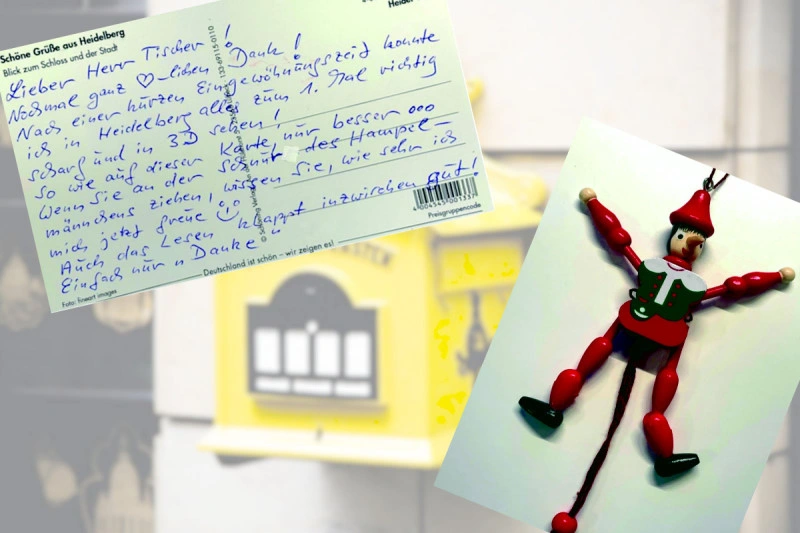 Schöne Grüße aus Heidelberg
Blick zum Schloss und der Stadt
Lieber Herr Tischer!
Nochmal ganz ♡-lichen Dank!
Nach einer kurzen Eingewöhnungszeit konnte
ich in Heidelberg alles zum 1. Mal richtig
scharf und in 3D sehen!
so wie auf dieser Karte, nur besser ooo
Wenn Sie an der Schnur des Hampel-
männchens ziehen, wissen Sie, wie sehr ich
mich jetzt freue ☺
Auch das Lesen klappt inzwischen gut!
Einfach nur "Danke"
Preisgruppencode
Deutschland ist schön – wir zeigen es!